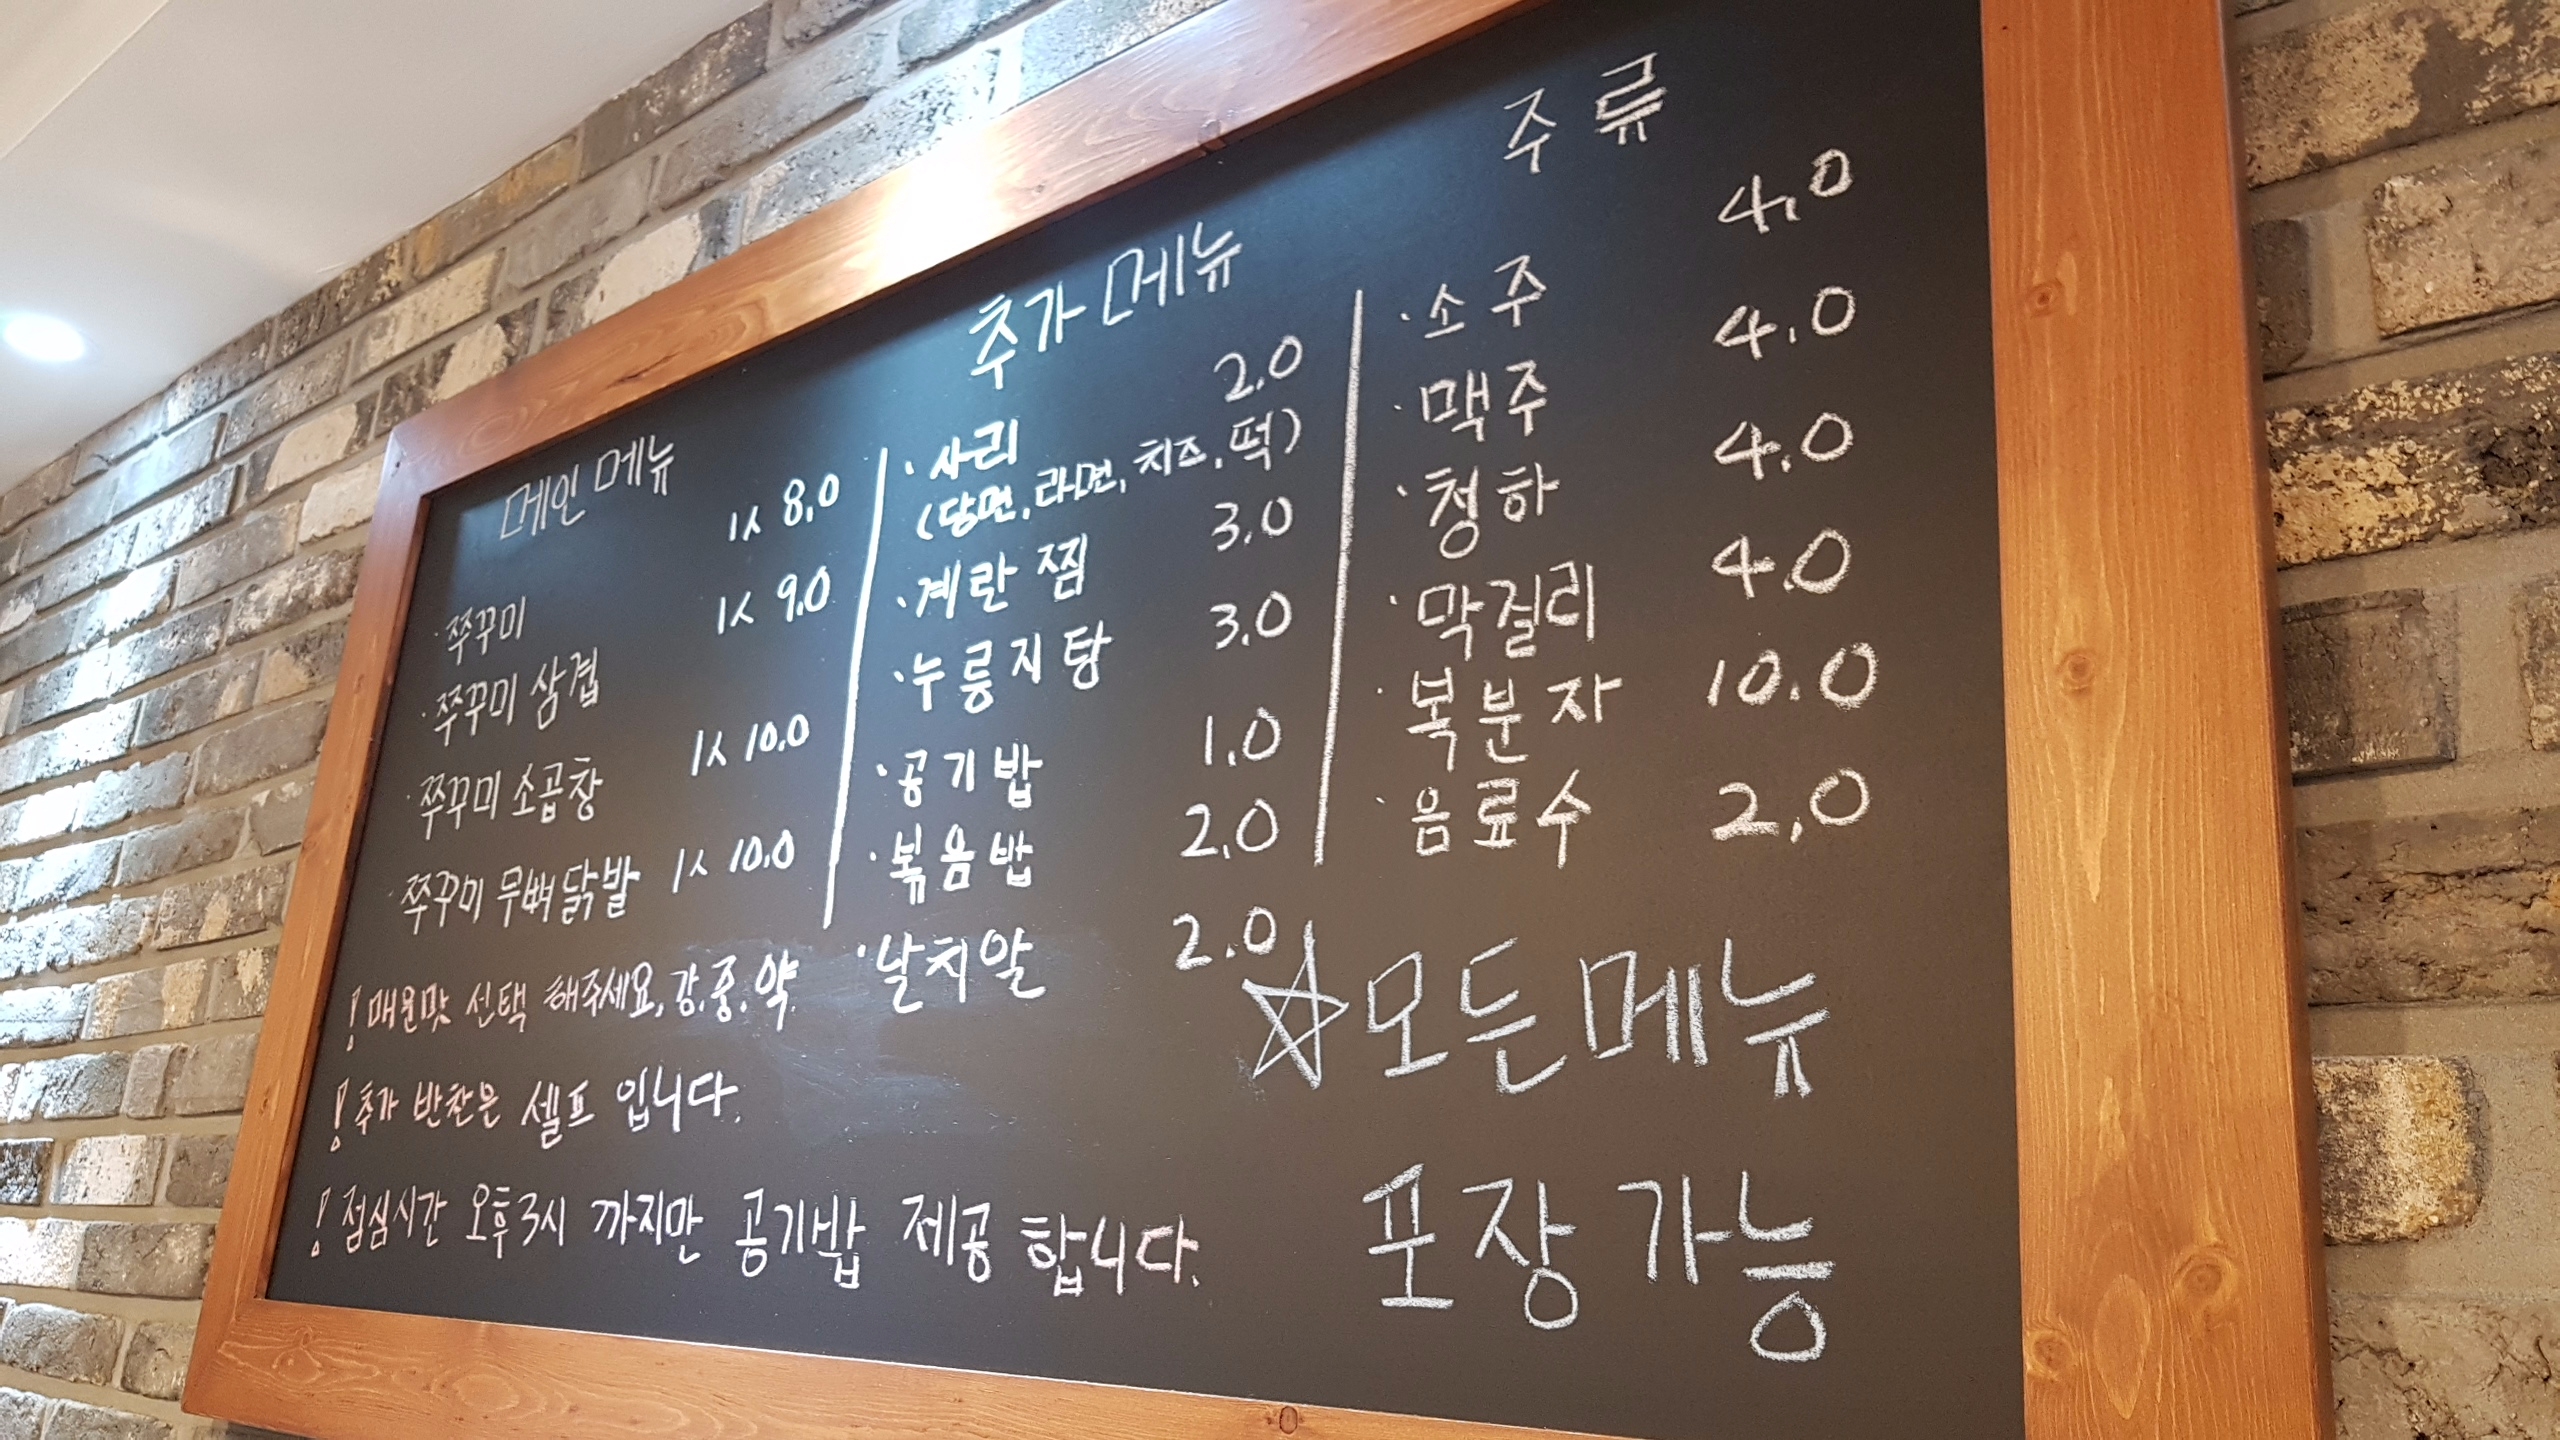 메인 메뉴
· 쭈꾸미 1人 8.0
· 쭈꾸미 삼겹 1人 9.0
· 쭈꾸미 소곱창 1人 10.0
· 쭈꾸미 무뼈닭발 1人 10.0
! 매운맛 선택 해주세요, 강.중.약.
! 추가 반찬은 셀프 입니다.
! 점심시간 오후3시 까지만 공기밥 제공 합니다.
추가 메뉴
· 사리 2.0
(당면, 라면, 치즈, 떡)
· 계란찜 3.0
· 누릉지탕 3.0
· 공기밥 1.0
· 볶음밥 2.0
· 날치알 2.0
주류
· 소주 4.0
· 맥주 4.0
· 청하 4.0
· 막걸리 4.0
· 복분자 10.0
· 음료수 2.0
☆모든메뉴
포장 가능